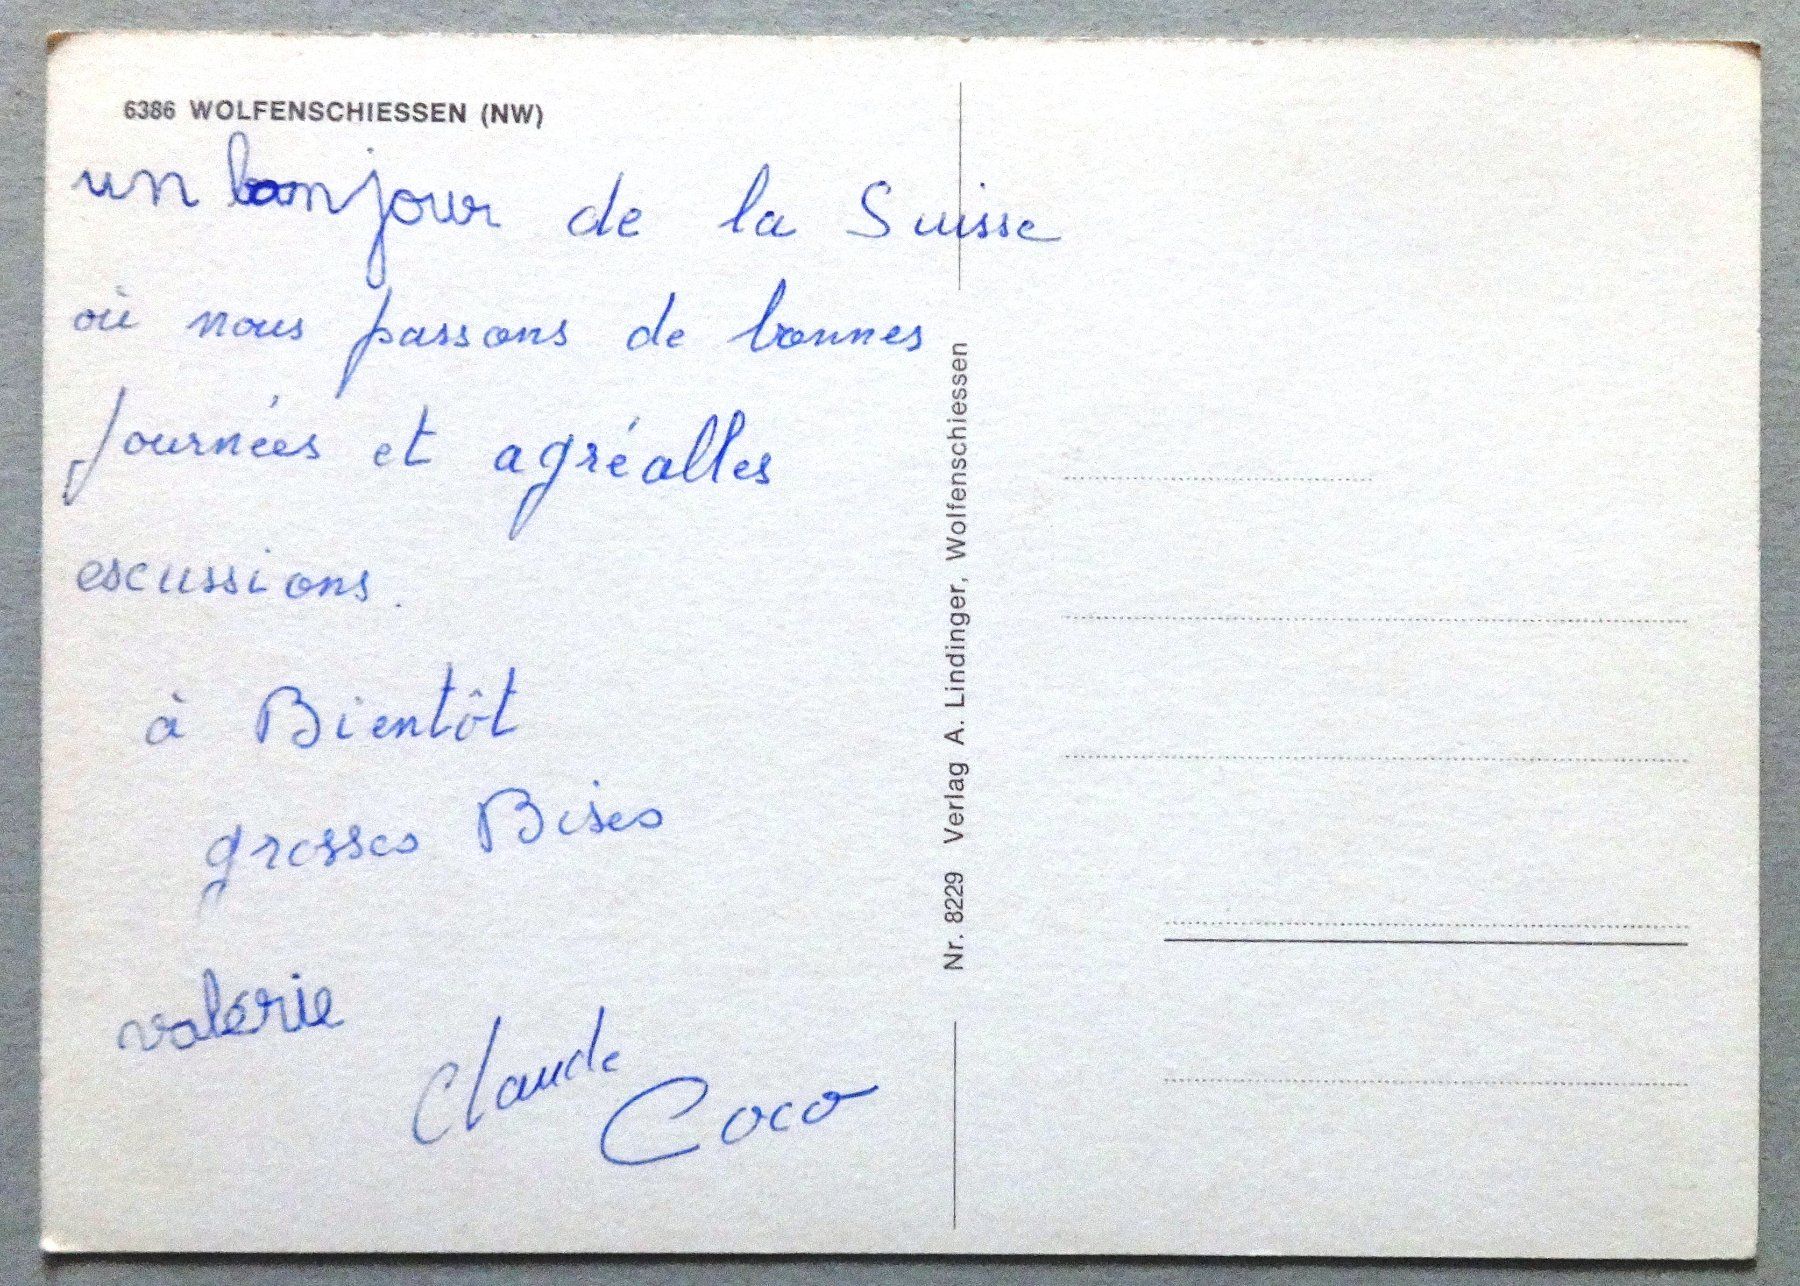 6386 WOLFENSCHIESSEN (NW)
un bonjour de la Suisse
où nous passons de bonnes
Journées et agréalles
escussions.
à Bientôt
grosses Bises
valérie
Claude
Coco
Nr. 8229 Verlag A. Lindinger, Wolfenschiessen